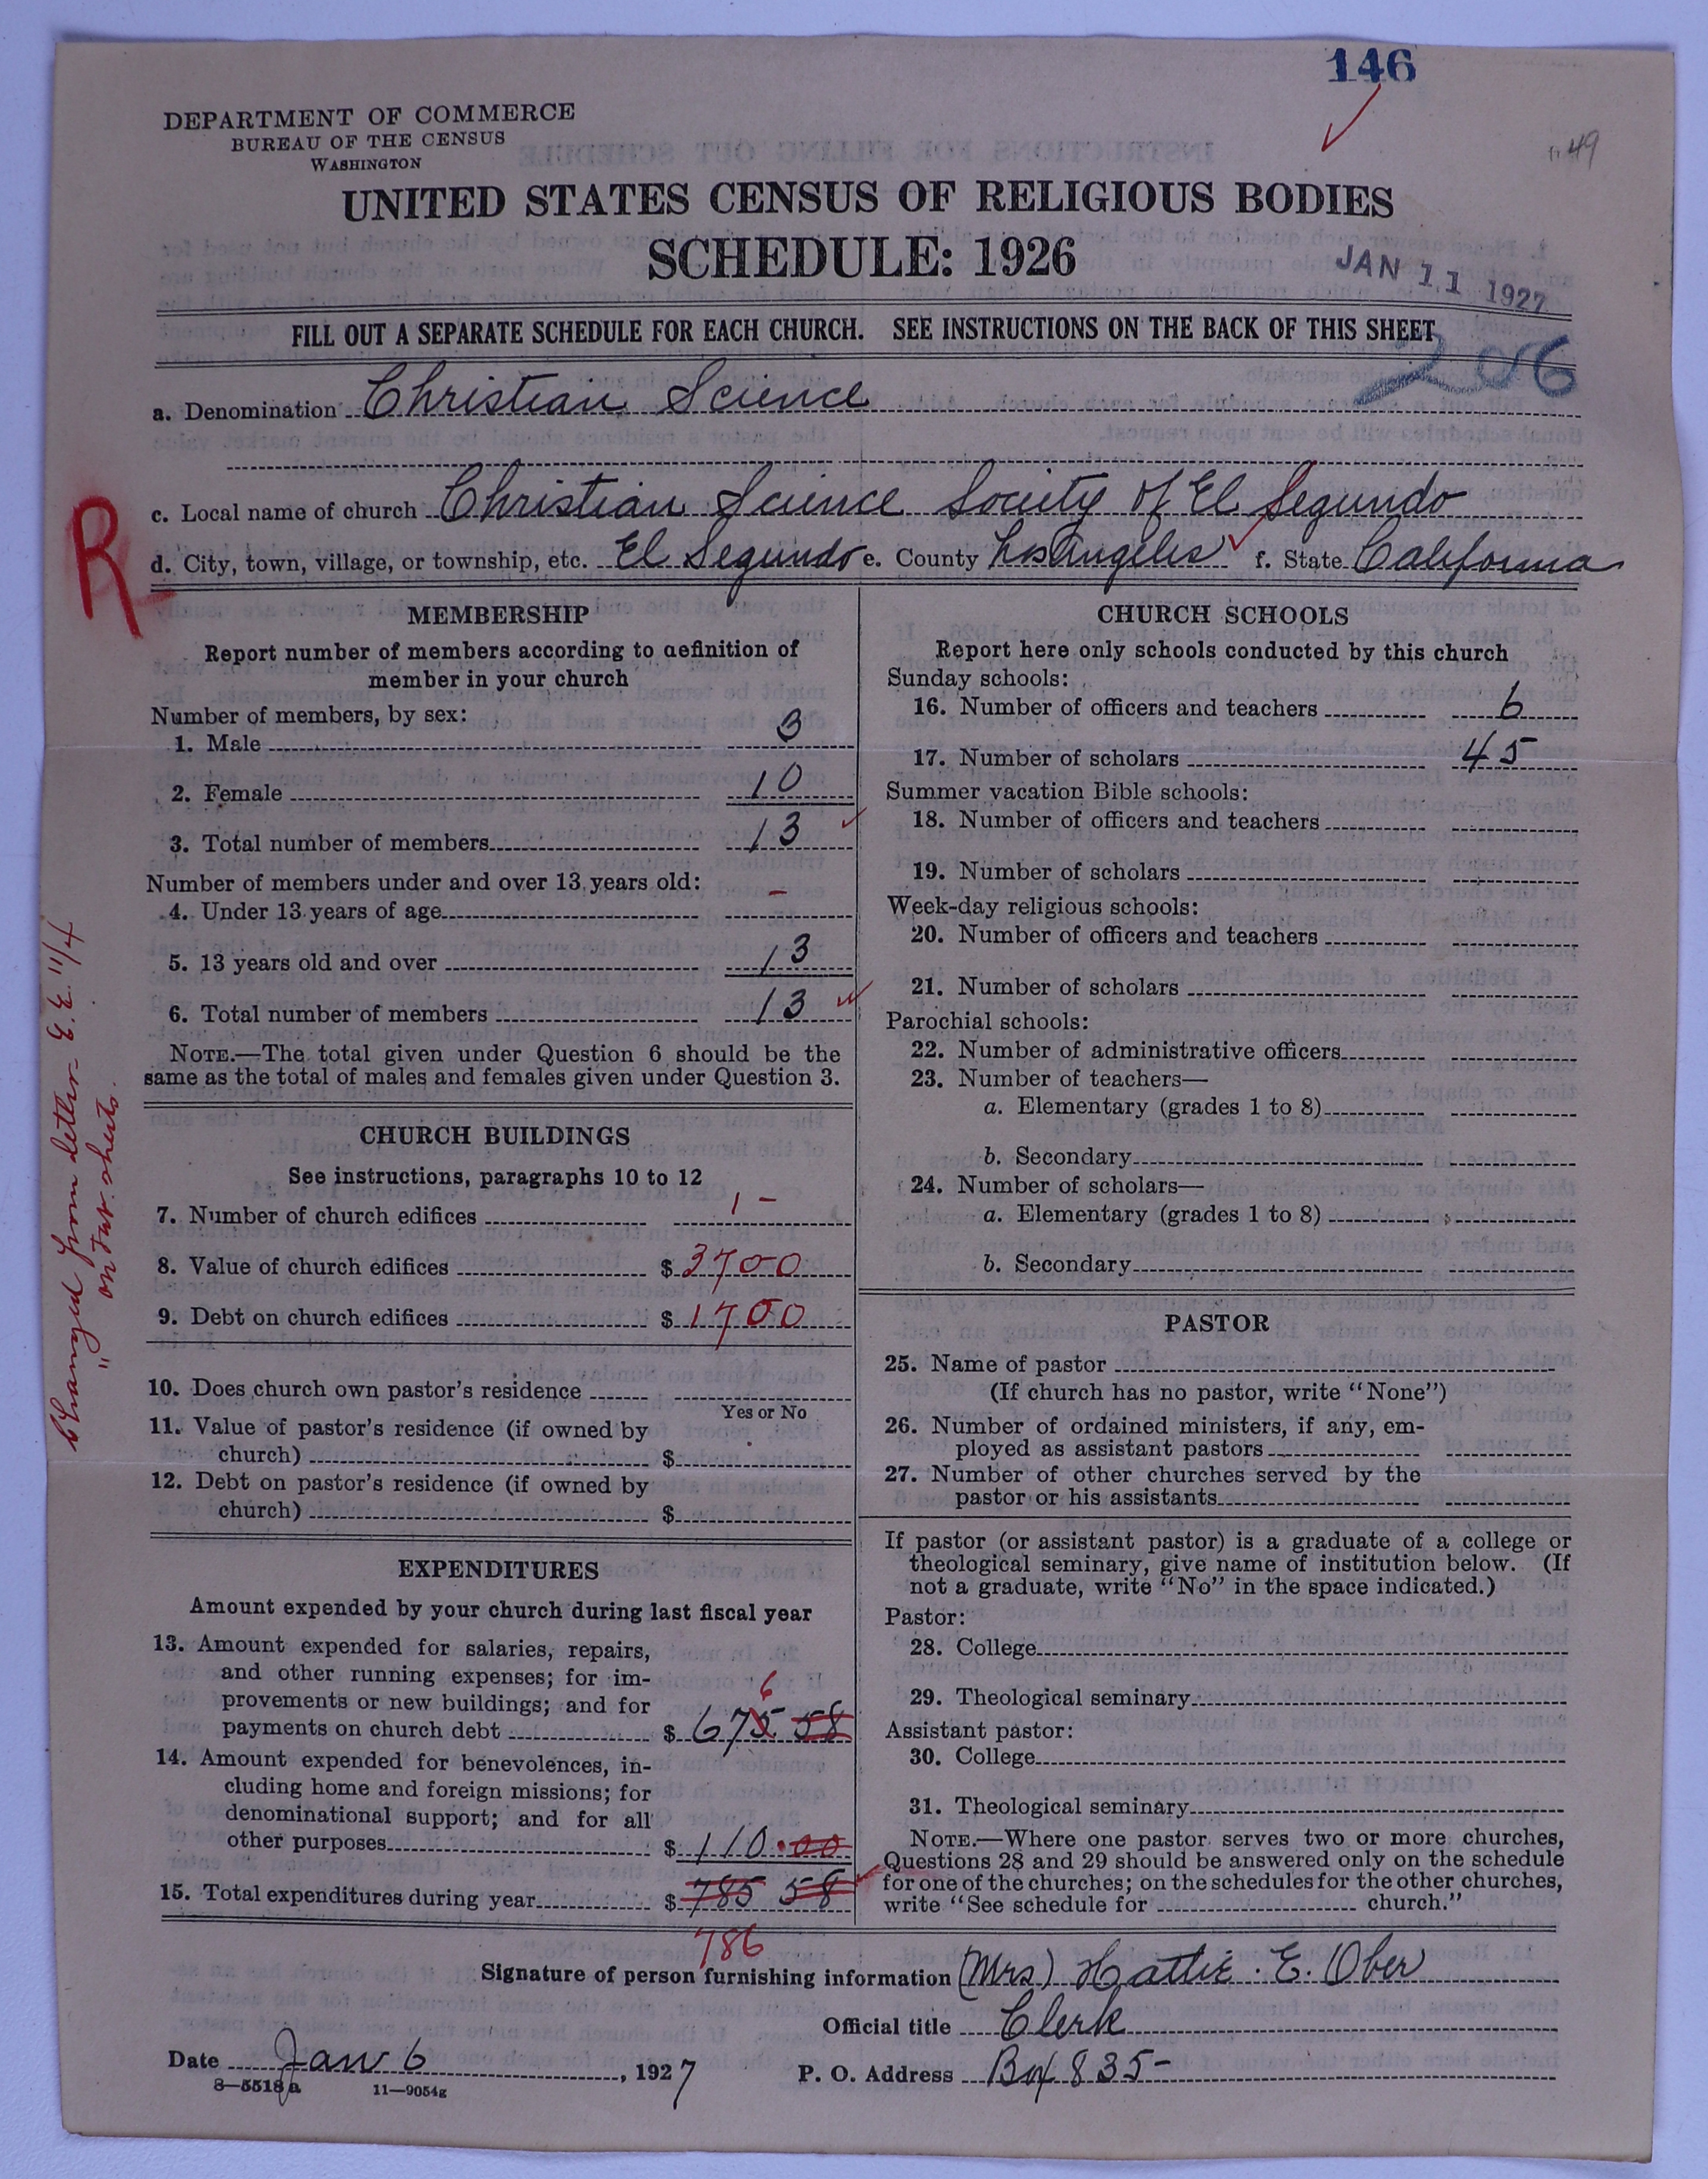 146
DEPARTMENT OF COMMERCE
BUREAU OF THE CENSUS
WASHINGTON
49
UNITED STATES CENSUS OF RELIGIOUS BODIES
SCHEDULE: 1926
JAN 11 1927
FILL OUT A SEPARATE SCHEDULE FOR EACH CHURCH. SEE INSTRUCTIONS ON THE BACK OF THIS SHEET
206
a. Denomination Christian Science
c. Local name of church Christian Science Society of El Segundo
R
d. City, town, village, or township, etc. El Segundo e. County Los Angeles f. State California
MEMBERSHIP
Report number of members according to definition of
member in your church
Number of members, by sex:
1. Male 3
2. Female 10
3. Total number of members 13
Number of members under and over 13 years old:
4. Under 13 years of age -
5. 13 years old and over 13
6. Total number of members 13
NOTE.—The total given under Question 6 should be the
same as the total of males and females given under Question 3.
CHURCH BUILDINGS
See instructions, paragraphs 10 to 12
7. Number of church edifices 1 -
8. Value of church edifices $ 3700
9. Debt on church edifices $ 1700
10. Does church own pastor's residence
Yes or No
11. Value of pastor's residence (if owned by
church) $
12. Debt on pastor's residence (if owned by
church) $
EXPENDITURES
Amount expended by your church during last fiscal year
13. Amount expended for salaries, repairs,
and other running expenses; for im-
provements or new buildings; and for
6
payments on church debt $ 675 58
14. Amount expended for benevolences, in-
cluding home and foreign missions; for
denominational support; and for all
other purposes $ 110.00
15. Total expenditures during year $ 785 58
786
changed from letter E.E. 11/4
" on tab. sheets.
CHURCH SCHOOLS
Report here only schools conducted by this church
Sunday schools:
16. Number of officers and teachers 6
17. Number of scholars 45
Summer vacation Bible schools:
18. Number of officers and teachers
19. Number of scholars
Week-day religious schools:
20. Number of officers and teachers
21. Number of scholars
Parochial schools:
22. Number of administrative officers
23. Number of teachers—
a. Elementary (grades 1 to 8)
b. Secondary
24. Number of scholars—
a. Elementary (grades 1 to 8)
b. Secondary
PASTOR
25. Name of pastor
(If church has no pastor, write "None")
26. Number of ordained ministers, if any, em-
ployed as assistant pastors
27. Number of other churches served by the
pastor or his assistants
If pastor (or assistant pastor) is a graduate of a college or
theological seminary, give name of institution below. (If
not a graduate, write "No" in the space indicated.)
Pastor:
28. College
29. Theological seminary
Assistant pastor:
30. College
31. Theological seminary
NOTE.—Where one pastor serves two or more churches,
Questions 28 and 29 should be answered only on the schedule
for one of the churches; on the schedules for the other churches,
write "See schedule for church."
Signature of person furnishing information (Mrs) Hattie E. Ober
Official title Clerk
Date Jan 6, 1927 P. O. Address Box 835-
8—5518a 11—9054g